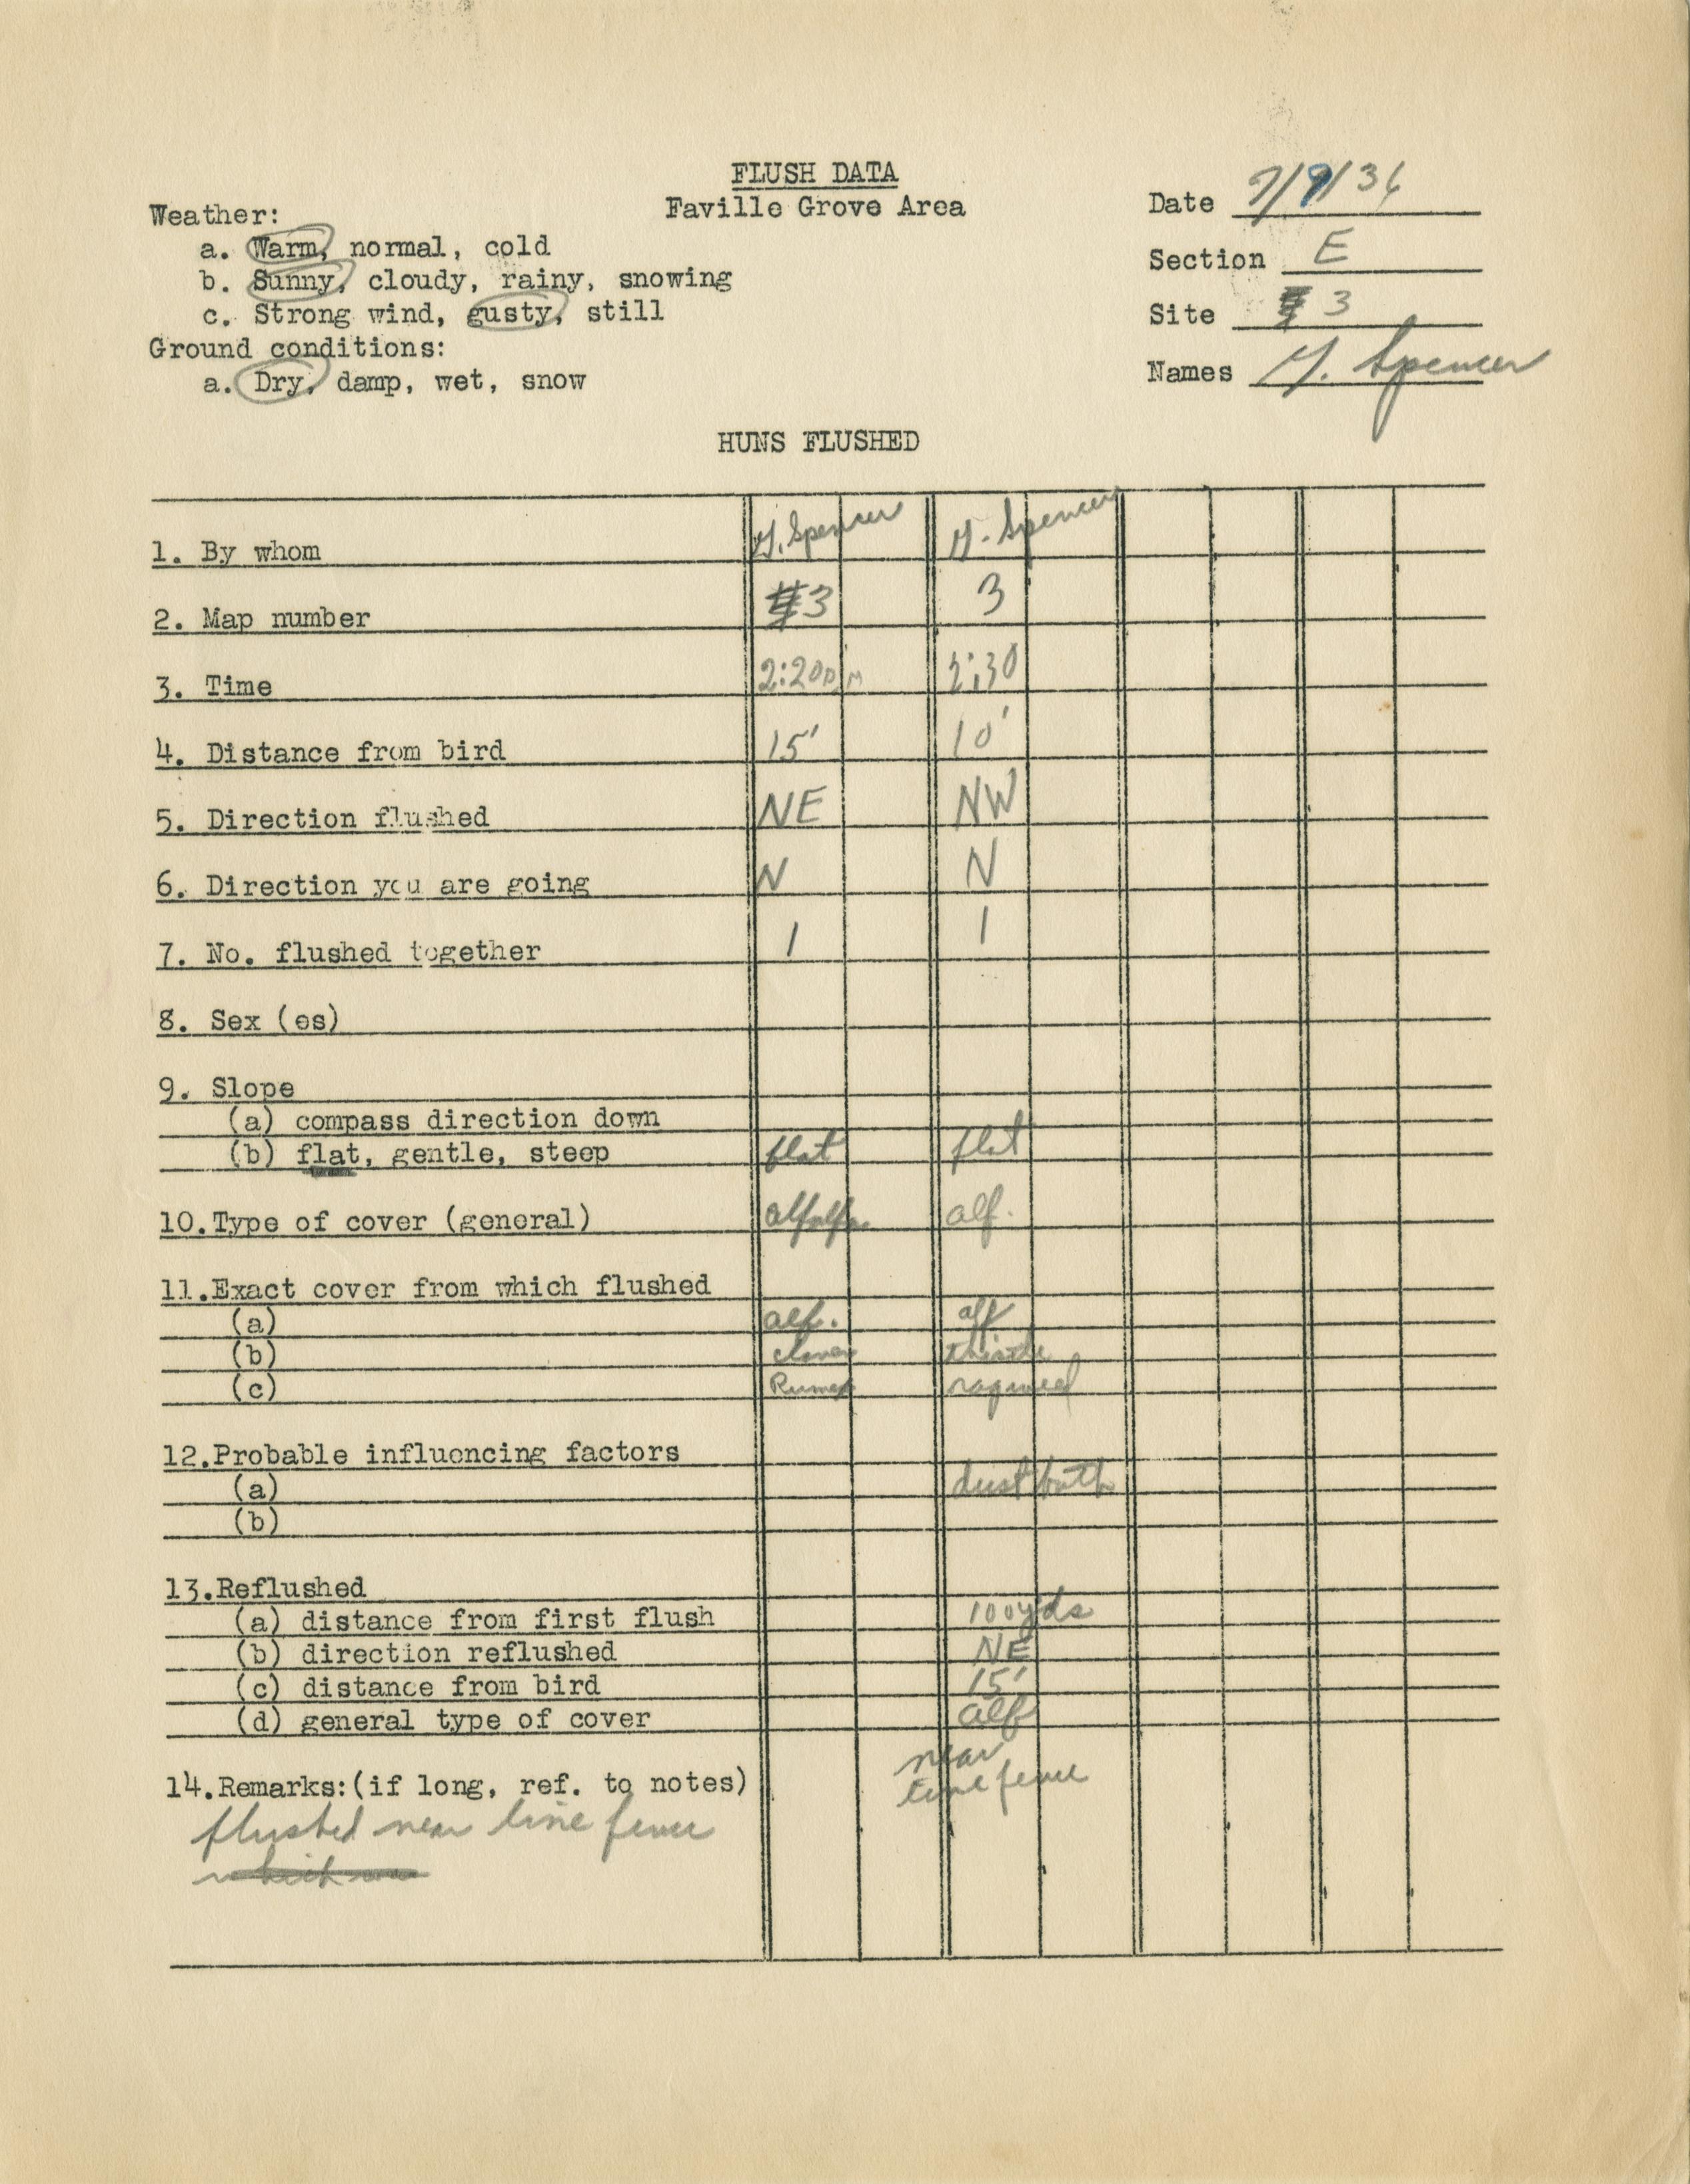 FLUSH DATA
Faville Grove Area
Date 7/9/36
Section E
Site 3
Names G. Spencer
Weather:
a. Warm, normal, cold
b. Sunny, cloudy, rainy, snowing
c. Strong wind, gusty, still
Ground conditions:
a. Dry, damp, wet, snow
HUNS FLUSHED
1. By whom G. Spencer G. Spencer
2. Map number #3 3
3. Time 2:20 p.m 2:30
4. Distance from bird 15' 10'
5. Direction flushed NE NW
6. Direction you are going N N
7. No. flushed together 1 1
8. Sex (es)
9. Slope
(a) compass direction down
(b) flat, gentle, steep flat flat
10. Type of cover (general) alfalfa alf.
11. Exact cover from which flushed
(a) alf. alf
(b) clover thistle
(c) Rumex ragweed
12. Probable influencing factors
(a) dust bath
(b)
13. Reflushed
(a) distance from first flush 100yds
(b) direction reflushed NE
(c) distance from bird 15'
(d) general type of cover alf
near
14. Remarks:(if long, ref. to notes) line fence
flushed near line fence